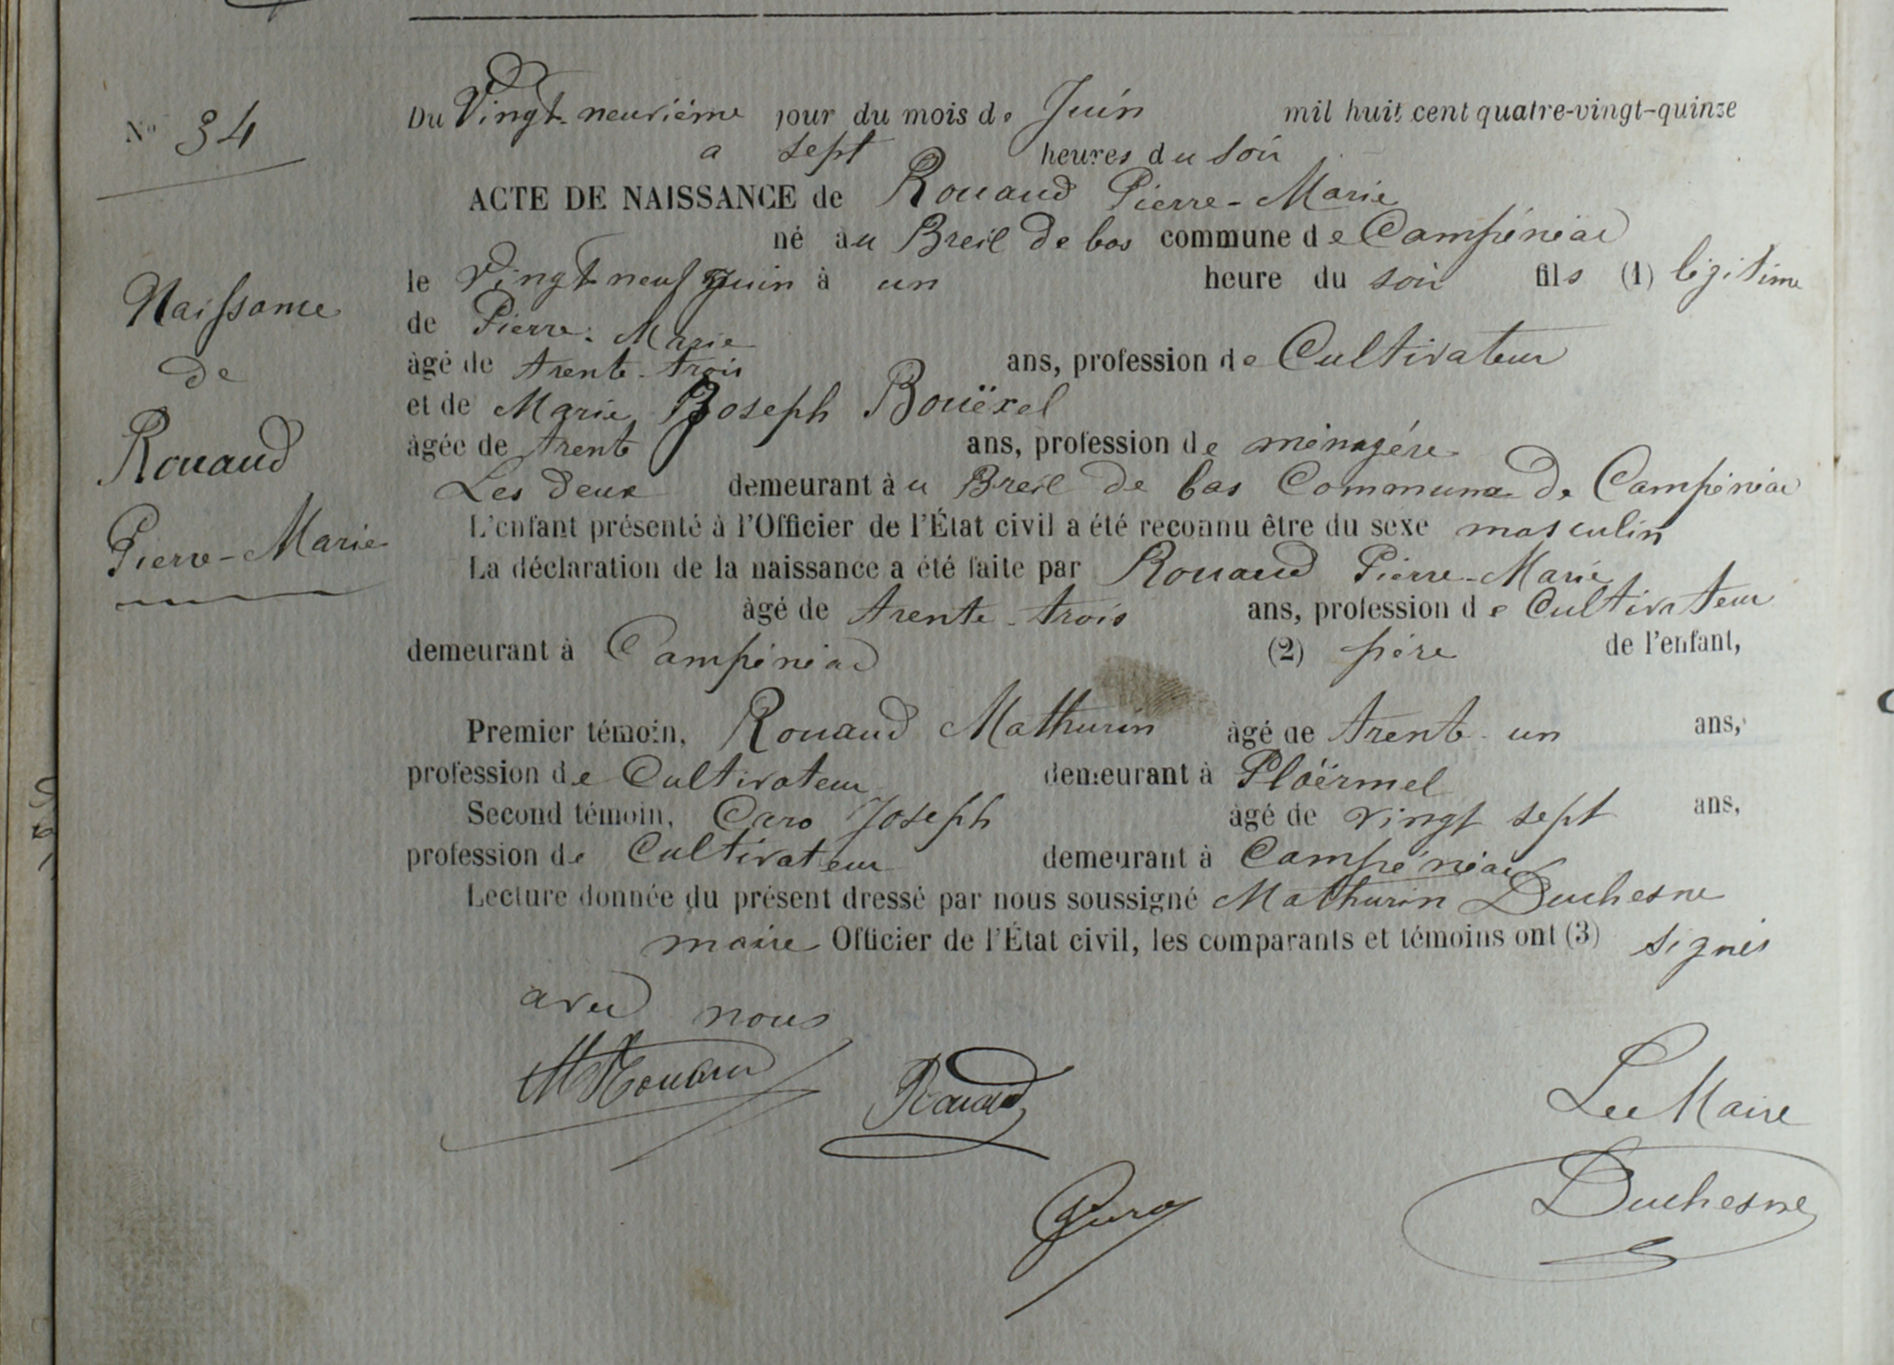 Nº 34
Naissance
de
Rouaud
Pierre-Marie
Du Vingt-neuvième jour du mois de Juin mil huit cent quatre-vingt-quinze
a sept heures du soir
ACTE DE NAISSANCE de Rouaud Pierre-Marie
né au Breil de bas commune de Campénéac
le Vingt neuf Juin à un heure du soir fils (1) légitime
de Pierre-Marie
âgé de trente-trois ans, profession de Cultivateur
et de Marie Joseph Bouëxel
âgée de trente ans, profession de ménagère
Les deux demeurant à u Breil de bas Commune de Campénéac
L'enfant présenté à l'Officier de l'État civil a été reconnu être du sexe masculin
La déclaration de la naissance a été faite par Rouaud Pierre-Marie
âgé de trente-trois ans, profession de Cultivateur
demeurant à Campénéac (2) père de l'enfant,
Premier témoin, Rouaud Mathurin âgé de trente-un ans,
profession de Cultivateur demeurant à Ploërmel
Second témoin, Caro Joseph âgé de vingt sept ans,
profession de Cultivateur demeurant à Campénéac
Lecture donnée du présent dressé par nous soussigné Mathurin Duchesne
maire Officier de l'État civil, les comparants et témoins ont (3) signés
avec nous
M Rouaud
Rouaud
Caro
Le Maire
Duchesne